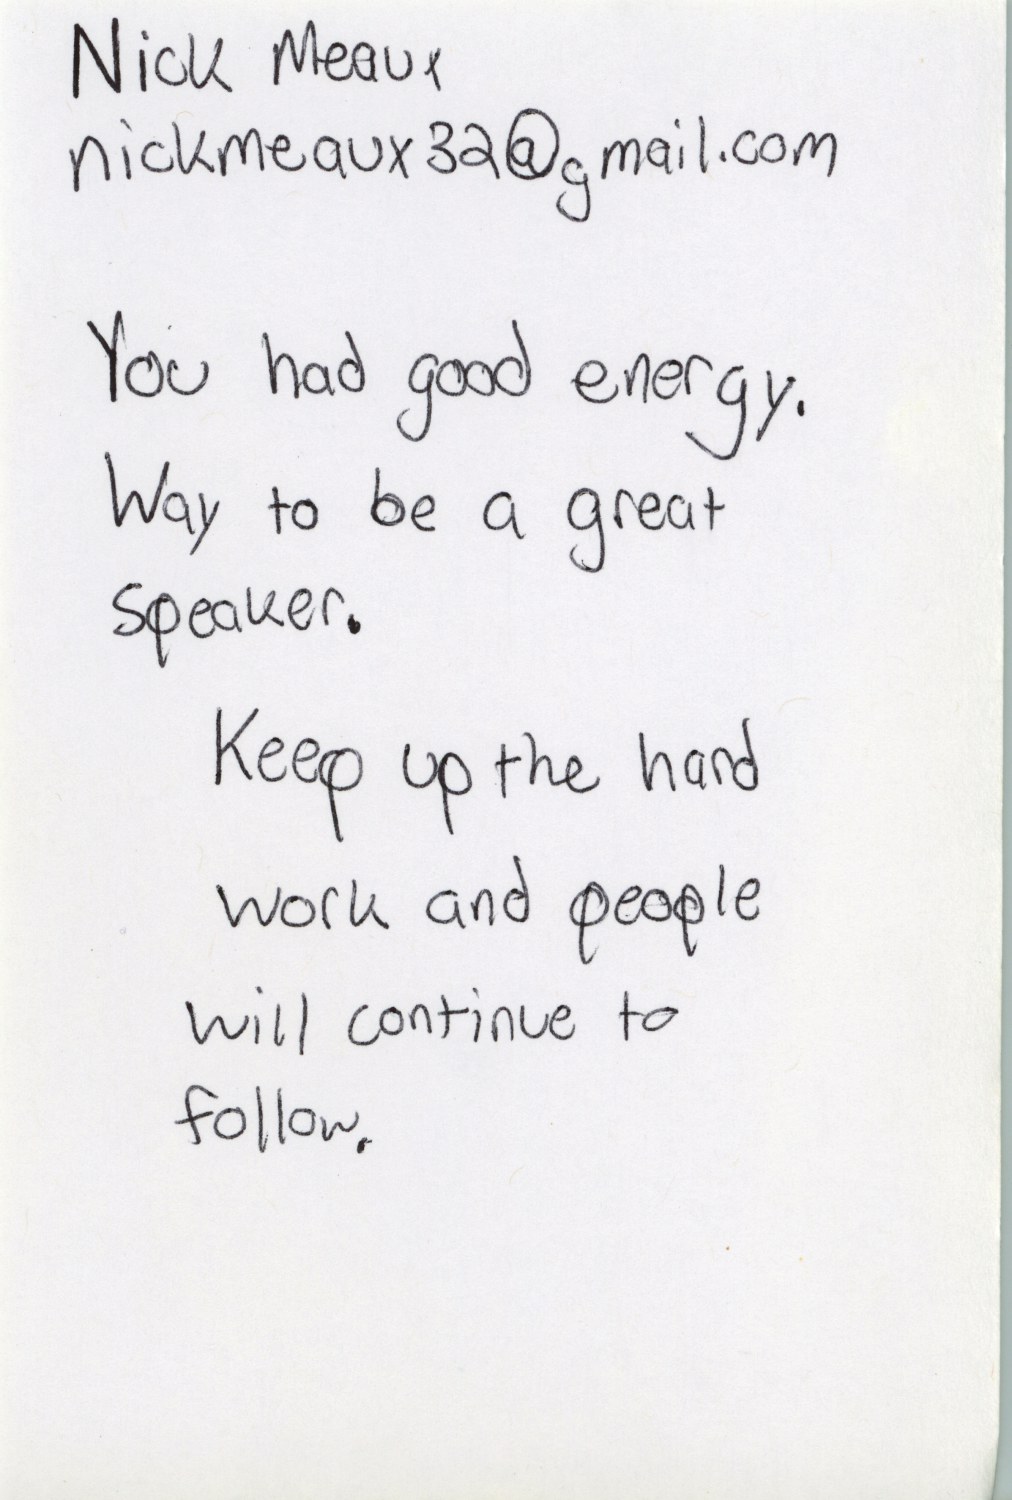 Nick Meaux
nickmeaux32@gmail.com
You had good energy.
Way to be a great
speaker.
Keep up the hard
work and people
will continue to
follow.